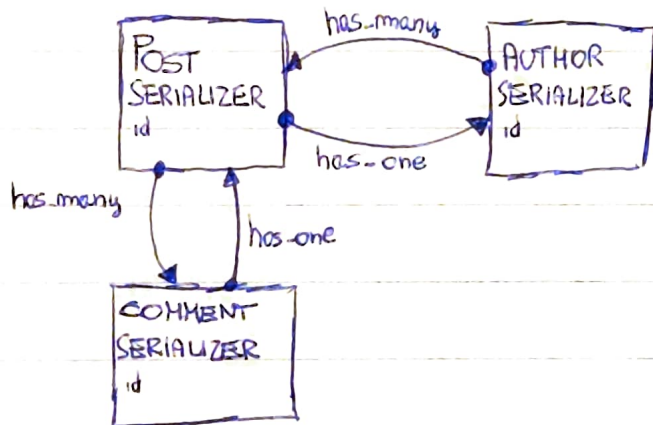 has_many
POST
SERIALIZER
id
AUTHOR
SERIALIZER
id
has_one
has_many
has_one
COMMENT
SERIALIZER
id